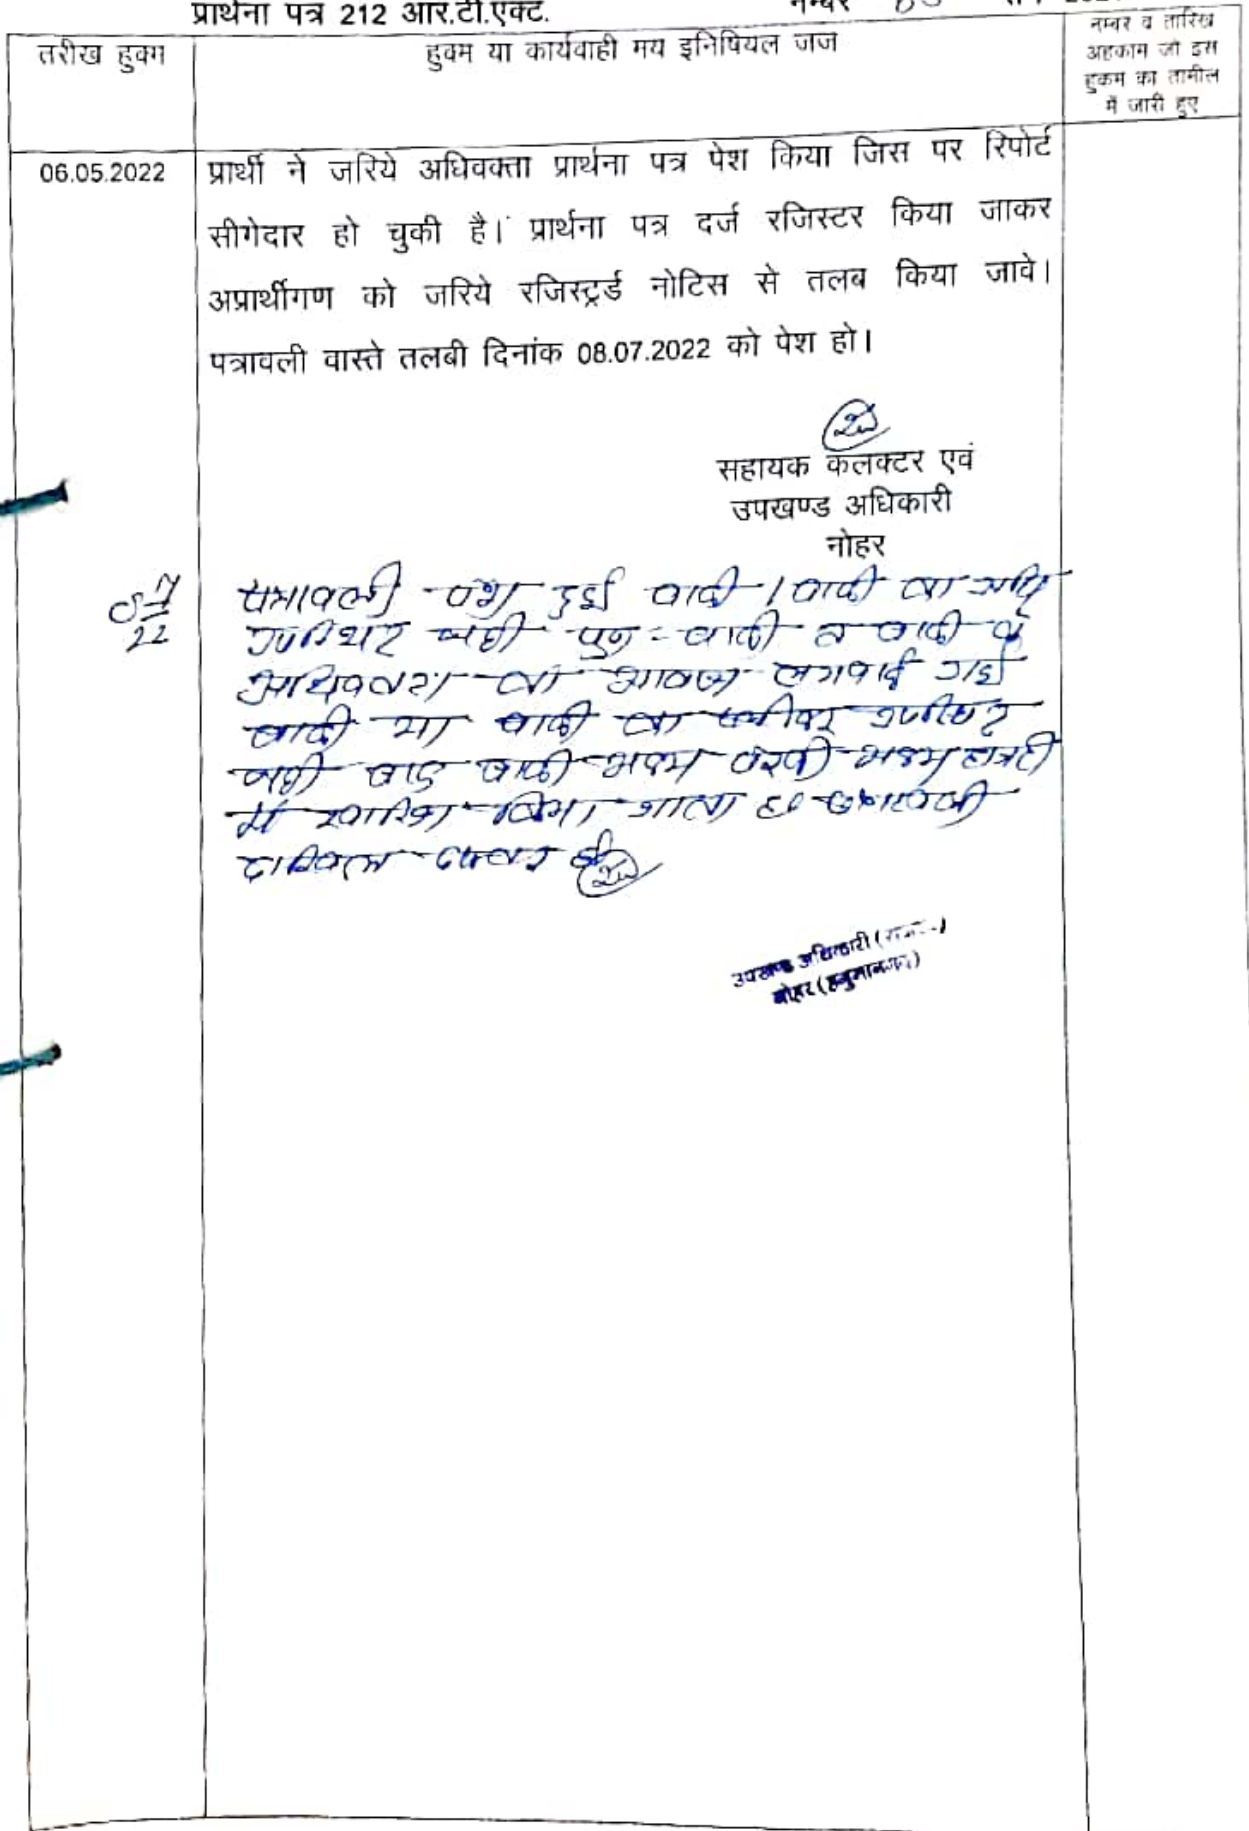 प्रार्थना पत्र 212 आर.टी.एक्ट. नम्बर
तरीख हुक्म
हुक्म या कार्यवाही मय इनिषियल जज
नम्बर व तारिख
अहकाम जो इस
हुकम का तामील
में जारी हुए
06.05.2022
प्रार्थी ने जरिये अधिवक्ता प्रार्थना पत्र पेश किया जिस पर रिपोर्ट
सीगेदार हो चुकी है। प्रार्थना पत्र दर्ज रजिस्टर किया जाकर
अप्रार्थीगण को जरिये रजिस्ट्रर्ड नोटिस से तलब किया जावे।
पत्रावली वास्ते तलबी दिनांक 08.07.2022 को पेश हो।
सहायक कलक्टर एवं
उपखण्ड अधिकारी
नोहर
पत्रावली पेश हुई वादी / वादी का
उपस्थित नही पुनः वादी व वादी के
अधिवक्ता को आवाज लगवाई गई
वादी या वादी का उपस्थित
नही वादी अदम पैरवी अदम हाजरी
में खारिज किया जाता है पत्रावली
दाखिल दफ्तर हो
उपखण्ड अधिकारी
नोहर (हनुमानगढ़)